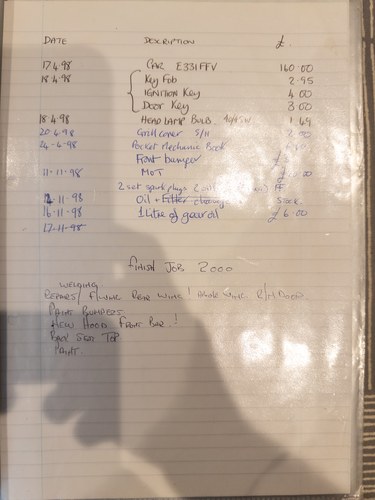 DATE DESCRIPTION £.
17.4.98 CAR E331FFV 140.00
18.4.98 Key Fob 2.95
IGNITION Key 4.00
Door Key 3.00
18.4.98 HEADLAMP BULB 1.49
20.4.98 Grill cover S/H
24-4-98 Pocket Mechanic Book
Front bumper
11-11-98 MOT
2 set spark plugs
11.98 Oil + Filter
16-11-98 1 litre of gear oil £6.00
17-11-98
FINISH JOB 2000
WELDING
REPAIRS/ REAR WING! R/H DOOR.
PAINT BUMPERS.
NEW HOOD FRONT BAR!
BACK SEAT TOP
PAINT.